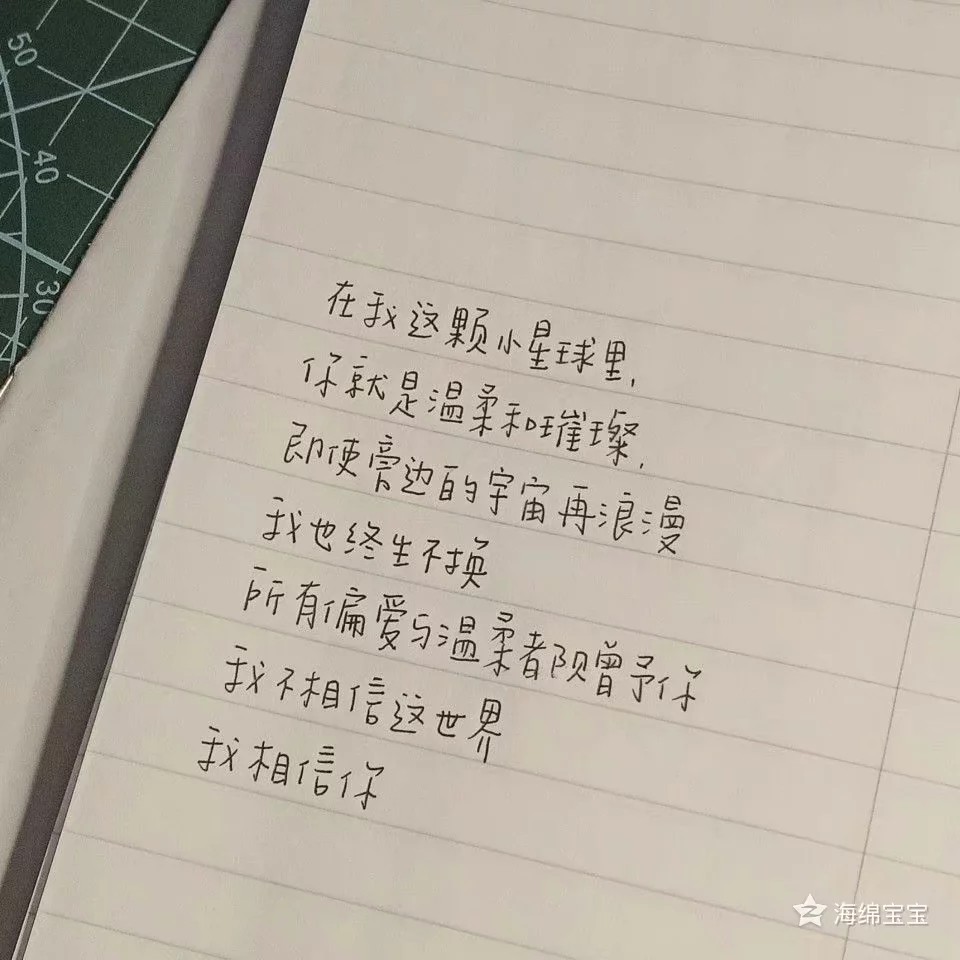 50
40
30
在我这颗小星球里,
你就是温柔和璀璨,
即使旁边的宇宙再浪漫
我也终生不换
所有偏爱与温柔都赠予你
我不相信这世界
我相信你
海绵宝宝